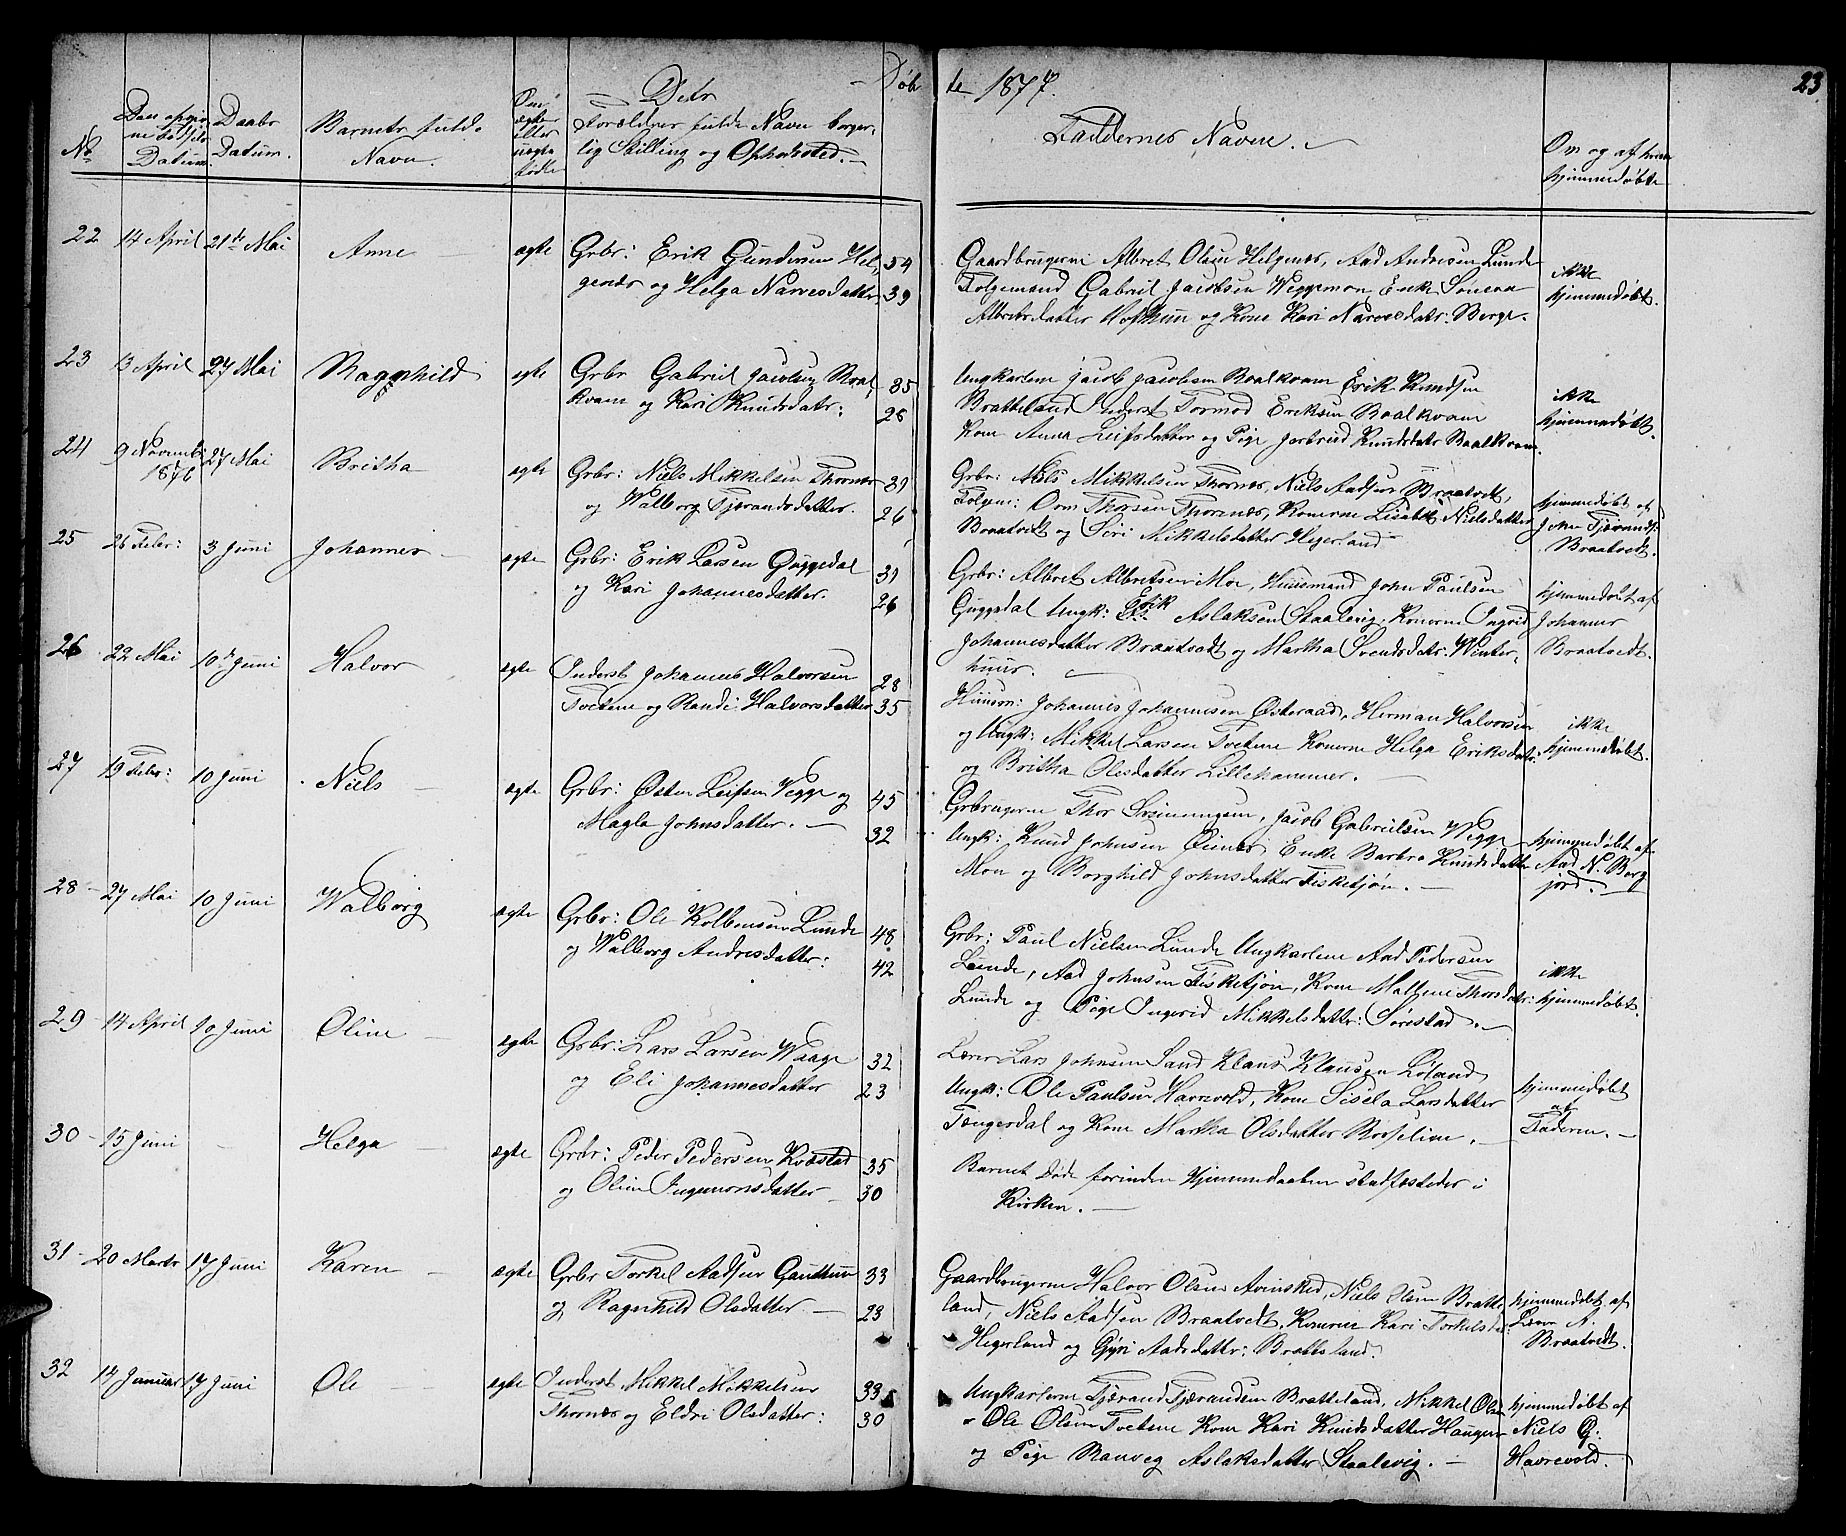 Døbte 1877. 23
No
Den opgivne Fødsels Datum.
Daabs Datum.
Barnets fulde Navn.
Om ægte eller uægte fødte
Dets Forældres fulde Navn borgerlig Stilling og Opholdssted.
Faddernes Navne.
Om og af hvem hjemmedøbte
22 14 April 21de Mai Anne ægte
Grbr: Erik Gundersen Hel- 54
genæs og Helga Narvesdatter 39
Gaardbrugerne Albret Olsen Helgenæs, Aad Andresen Lunde
Folgemand Gabriel Jacobsen Weggemon, Enke
Albretsdatter og Kone Kari Narvesdatr: Berge.
ikke
hjemmedøbt.
23 13 April 27 Mai Ragnhild ægte
Grbr Gabriel Jacobsen Raal- 35
kvam og Kari Knudsdatr: 28
Ungkarlene Jacob Jacobsen Raalkvam Erik Knudsen
Bratteland Inderst Tormod Eriksen Raalkvam
Kone Anna Leifsdatter og Pige Knudsdatr Raalkvam.
ikke
hjemmedøbt.
24 9 Novemb: 1876 27 Mai Britha ægte
Grbr: Niels Mikkelsen Thornæs 31
og Walborg Tjærandsdatter. 26
Grbr: Niels Mikkelsen Thornæs, Niels Aadsen Braatvedt,
Folgem: Thorsen Thornæs, Konerne Lisabet Nielsdatter
Braatvedt og Siri Mikkelsdatter Hegerland
hjemmedøbt af
John Tjærands:
Braatvedt.
25 26 Febr: 3 Juni Johannes ægte
Grbr: Erik Larsen Guggedal 31
og Kari Johannesdatter. 26
Grbr: Albret Albretsen Moe, Huusmand John Paulsen
Guggedal Ungk: Erik Aslaksen Staalevig, Konerne Ingrid
Johannesdatter Braatvedt og Martha Svendsdatr: Winter-
huus.
hjemmedøbt af
Johannes
Braatvedt.
26 22 Mai 10de Juni Halvor ægte
Inderst Johannes Halvorsen 28
Tvetene og Randi Halvorsdatter 35
Huusm: Johannes Johannesen Østeraad, Herman Halvorsen
og Ungk: Mikkel Larsen Tvetene Konerne Helga Eriksdatr:
og Britha Olesdatter Lillehammer.
ikke
hjemmedøbt.
27 19 Febr: 10 Juni Niels ægte
Grbr: Østen Leifsen Vegge og 45
Magla Johnsdatter. 32
Grbrugerne Thor Sveinungsen, Jacob Gabrielsen Wegge
Ungk: Knud Johnsen Enke Barbro Knudsdatter
Mon og Borghild Johnsdatter Fisketjøn.
hjemmedøbt af
Aad N. Berg-
jord.
28 27 Mai 10 Juni Walborg ægte
Grbr: Ole Kolbensen Lunde 48
og Walborg Andresdatter: 42
Grbr: Paul Nielsen Lunde Ungkarlene Aad Pedersen
Lunde, Aad Johnsen Fisketjøn, Kone Malene Thorsdatr:
Lunde og Pige Ingerid Mikkelsdatter: Sørestad.
ikke
hjemmedøbt.
29 14 April 10 Juni Oline ægte
Grbr: Lars Larsen Waage 32
og Eli Johannesdatter 23
Lærer Lars Johnsen Sand Klaus Klausen Løland
Ungk: Ole Paulsen Havrevold, Kone Sisela Larsdatter
Tengesdal og Kone Martha Olsdatter Roselien.
hjemmedøbt
af
Faderen.
30 15 Juni Helga ægte
Grbr: Peder Pedersen Kvæstad 35
og Oline Ingemonsdatter 30
Barnet døde forinden Hjemmedaaben stadfæstedes i
Kirken.
31 20 Marts 17 Juni Karen ægte
Grbr Torkel Aadsen Gauthun 33
og Ragnhild Olsdatter. 23
Gaardbrugerne Halvor Olsen Niels Olsen Bratte-
land, Niels Aadsen Braatvedt, Konerne Kari Torkelsdat:
Hegerland og Gyri Aadsdatter: Bratteland.
hjemmedøbt af
A.
Braatvedt.
32 14 Januar 17 Juni Ole ægte
Inderst Mikkel Mikkelsen 33
Thornæs og Eldri Olsdatter: 30
Ungkarlene Tjærand Tjærandsen Bratteland, Mikkel Olsen
Ole Olsen Tvetene Kone Kari Knudsdatter Haugen
og Pige Ranveg Aslaksdatter Staalevig.
hjemmedøbt af
Niels G.
Havrevold.